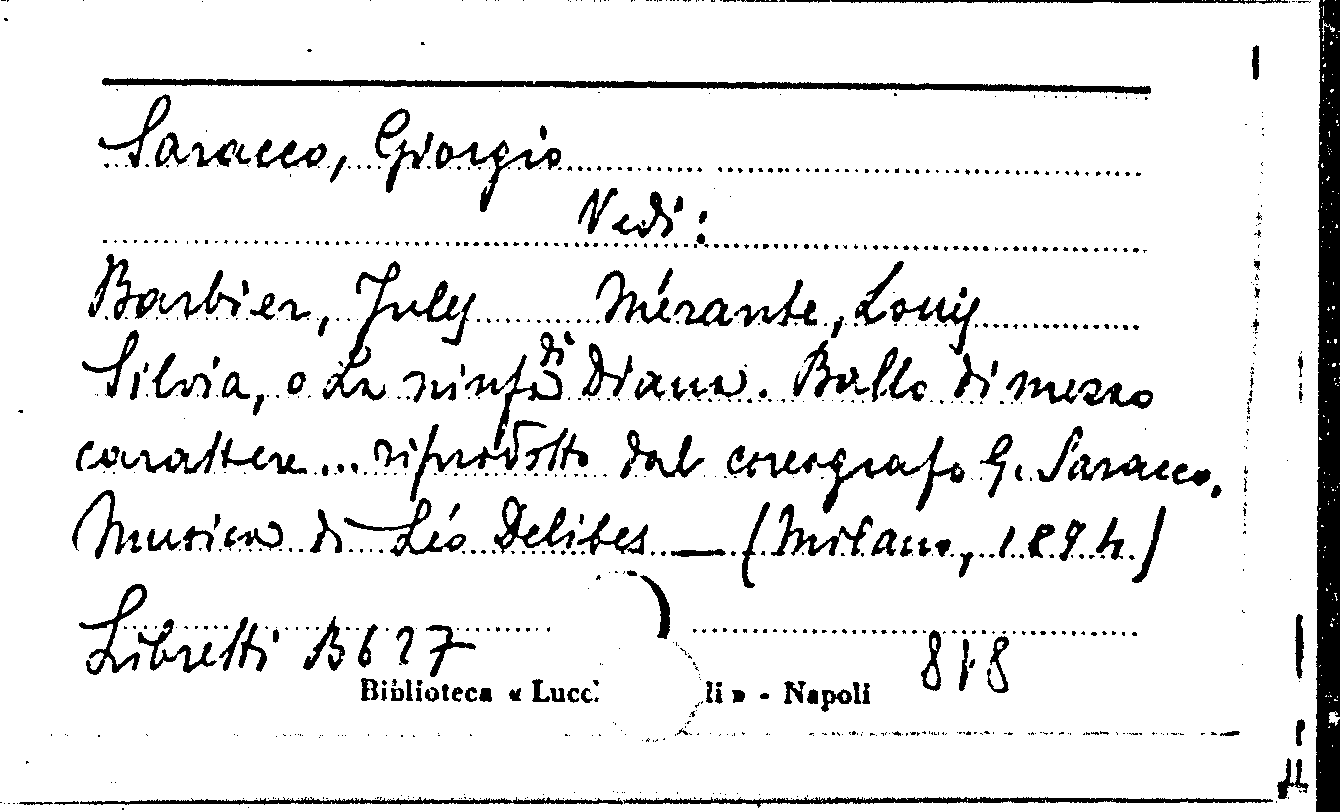 Saracco, Giorgio
Vedi:
Barbier, Jules Mérante, Louis
Silvia, o La ninfa di Diana. Ballo di mezzo
carattere... riprodotto dal coreografo G. Saracco.
Musica di Léo Delibes — (Milano, 1894)
Libretti B 627
818
Biblioteca « Lucc li » - Napoli